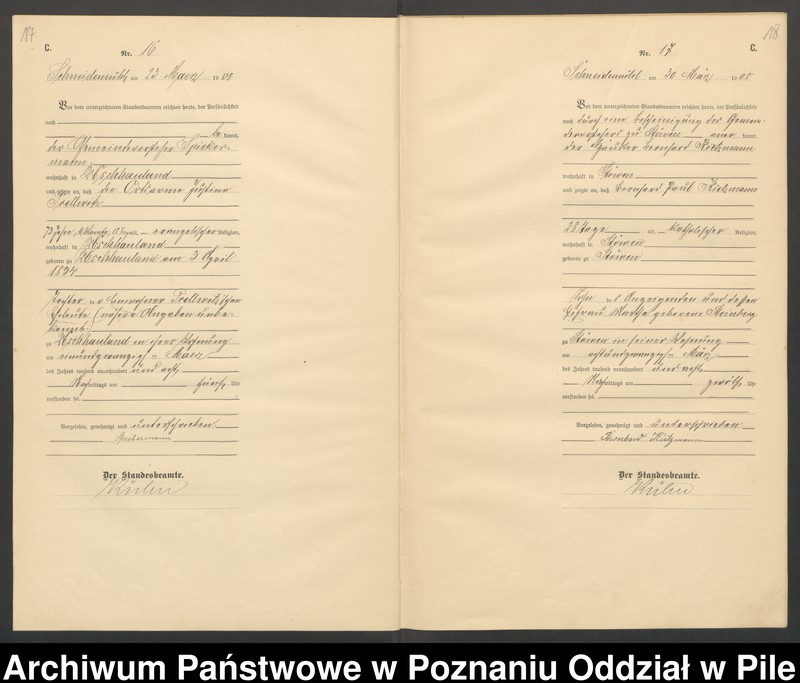 17
C.
Nr. 16
Schneidemühl am 23 Maerz 1908
Vor dem unterzeichneten Standesbeamten erschien heute, der Persönlichkeit
nach
be kannt,
der Gemeindevorsteher Spicker-
mann
wohnhaft in Uschhauland
und zeigte an, daß die Ortsarme Justine
Prellwitz
73 Jahre, 11 Monate, 18 Tage alt, evangelischer Religion,
wohnhaft in Uschhauland
geboren zu Uschhauland am 3 April
1834
Tochter der Einwohner Prellwitz'schen
Eheleute (nähere Angaben unbe-
kannt.)
zu Uschhauland in ihrer Wohnung
am einundzwanzigsten Maerz
des Jahres tausend neunhundert und acht
Nachmittags um fünf Uhr
verstorben sei.
Vorgelesen, genehmigt und unterschrieben
Der Standesbeamte.
Kühn
18
C.
Nr. 17
Schneidemühl am 30 März 1908
Vor dem unterzeichneten Standesbeamten erschien heute, der Persönlichkeit
nach durch eine Bescheinigung des Gemein-
devorstehers zu Stöwen aner kannt,
der Häusler Bernhard
wohnhaft in Stöwen
und zeigte an, daß Bernhard Paul
28 Tage alt, katholischer Religion,
wohnhaft in Stöwen
geboren zu Stöwen
Sohn des Anzeigenden und dessen
Ehefrau Martha geborene Steinberg
zu Stöwen in seiner Wohnung
am achtundzwanzigsten März
des Jahres tausend neunhundert und acht
Nachmittags um zwölf Uhr
verstorben sei.
Vorgelesen, genehmigt und unterschrieben
Bernhard
Der Standesbeamte.
Kühn
Archiwum Państwowe w Poznaniu Oddział w Pile